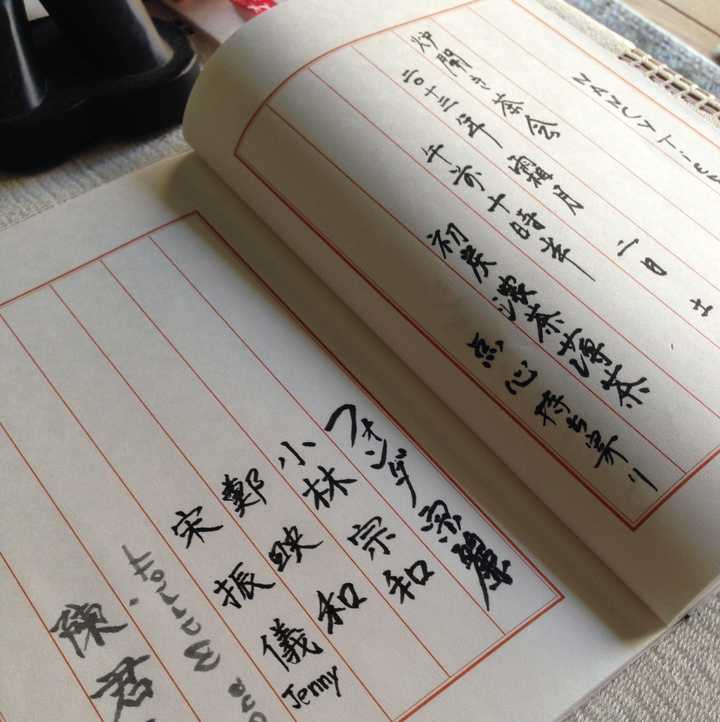 NANCY
炉開き茶会
二〇十三年 霜月 二日 土
午前十時半
初炭 濃茶 薄茶
点心 持ち寄り
フォンダ 宗麗
小林 宗和
鄭 映和
宋 振儀 Jenny
陳君